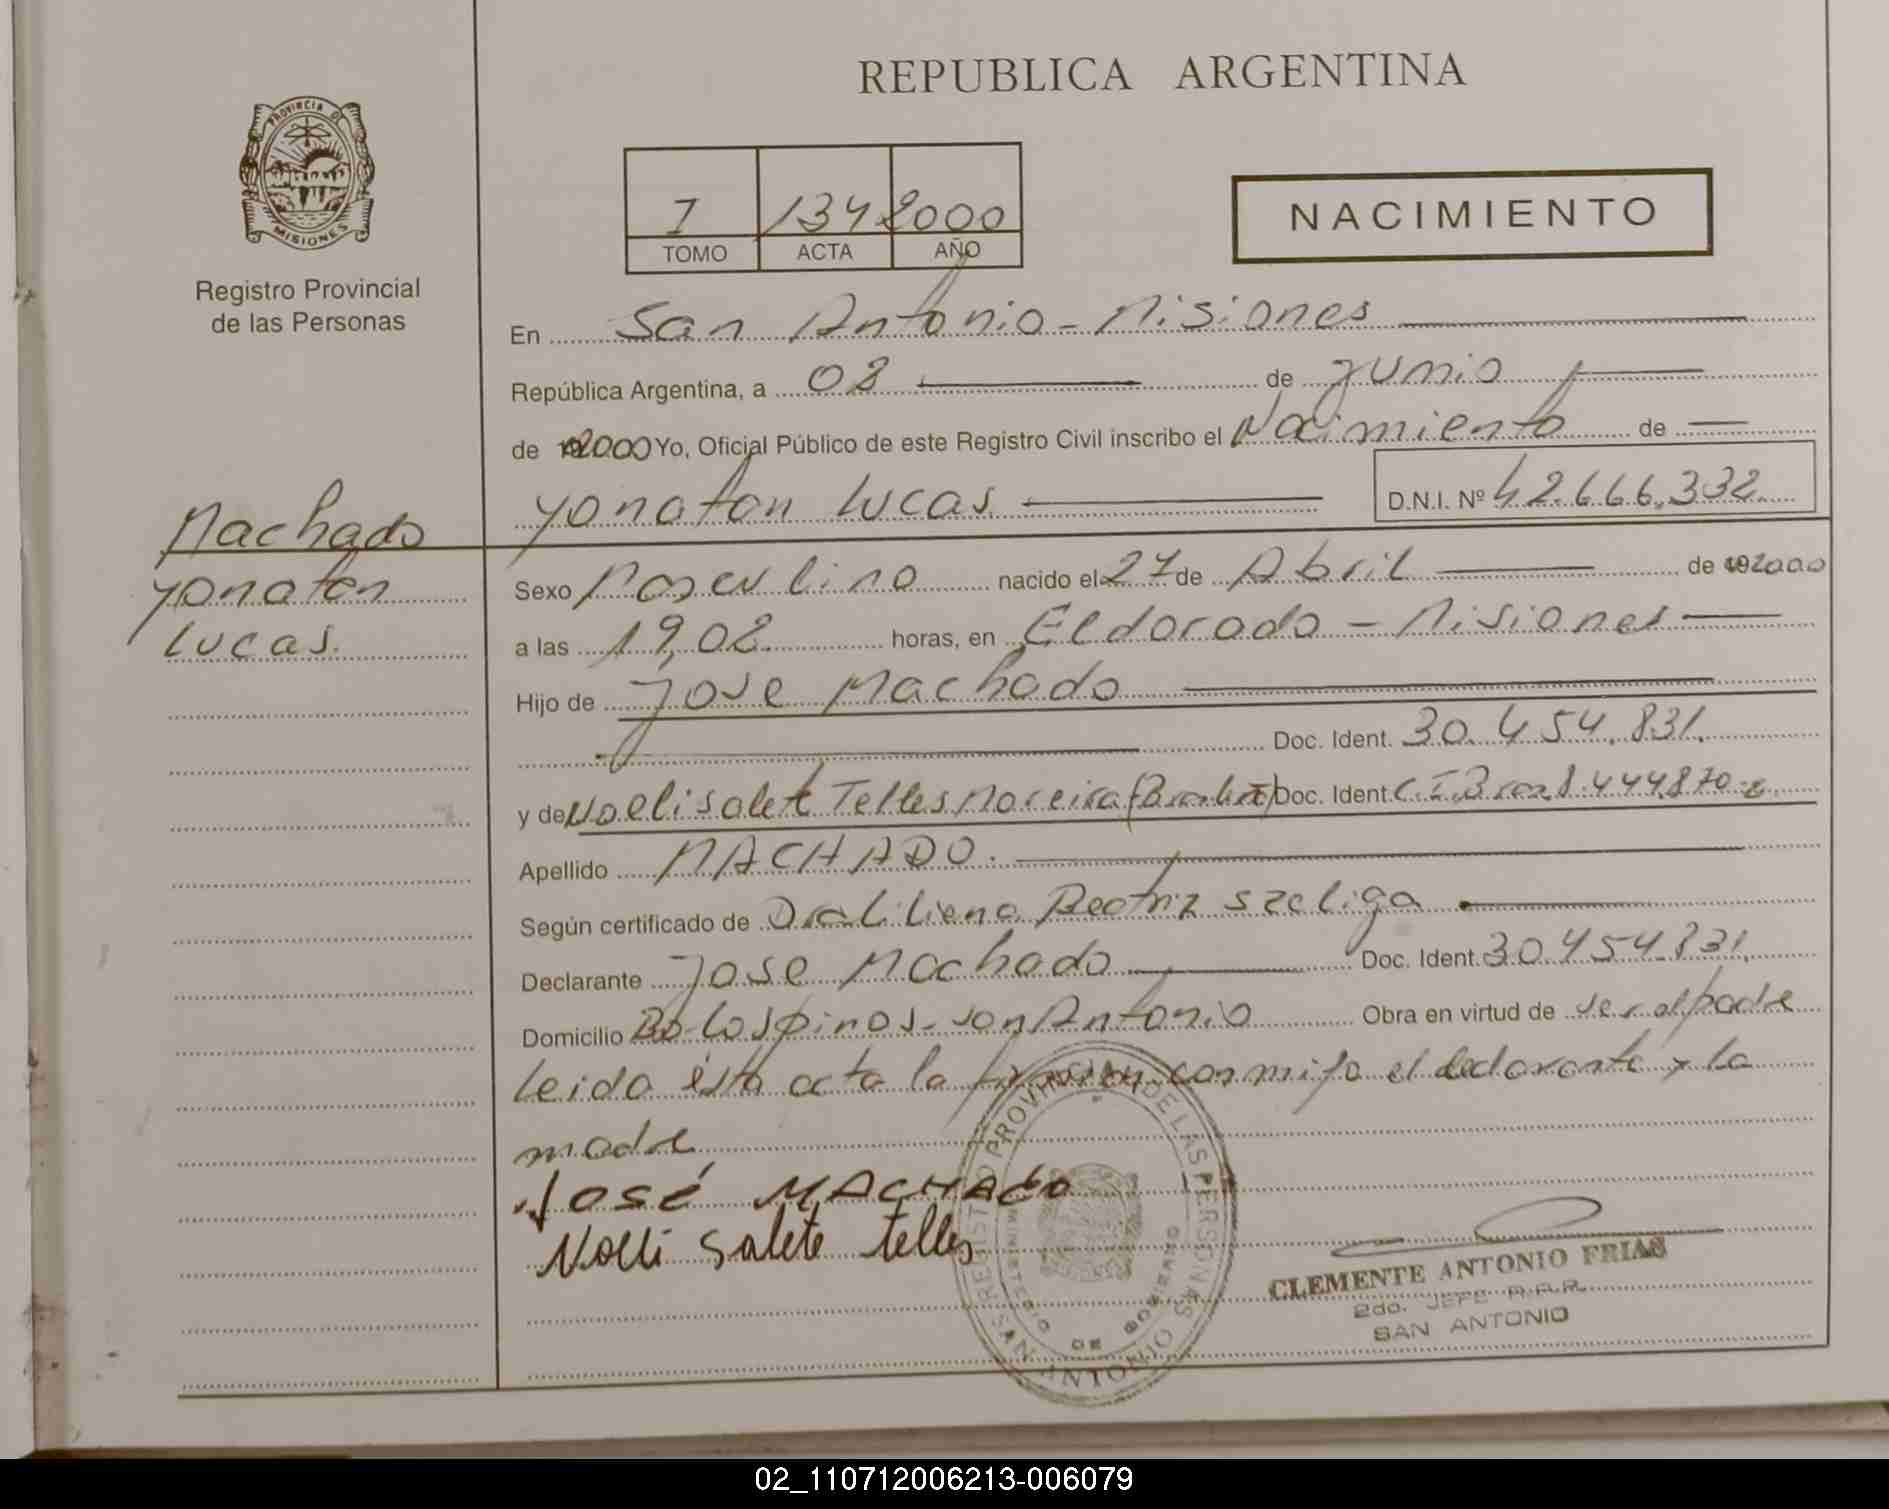 REPUBLICA ARGENTINA
PROVINCIA DE
MISIONES
Registro Provincial
de las Personas
I 134 2000
TOMO ACTA AÑO
NACIMIENTO
En San Antonio - Misiones
República Argentina, a 08 de Junio
de 2000 Yo, Oficial Público de este Registro Civil inscribo el Nacimiento de
Yonatan Lucas D.N.I. Nº 42.666.332
Machado
Yonatan
Lucas.
Sexo Masculino nacido el 27 de Abril de 2000
a las 19,02 horas, en Eldorado - Misiones
Hijo de Jose Machado
Doc. Ident. 30.454.831.
y de Noelisalete Telles Moreira (Brasilera) Doc. Ident. C.I.Bras 8.444.870-2
Apellido MACHADO.
Según certificado de Dra Liliana Beatriz Szeliga
Declarante Jose Machado Doc. Ident. 30.454.831.
Domicilio Bo-Los pinos-san Antonio Obra en virtud de ser el padre
Leida ésta acta la firman conmigo el declarante y la
madre
José MACHADO
Noeli Salete Telles
REGISTRO PROVINCIAL DE LAS PERSONAS
MINISTERIO DE GOBIERNO
SAN ANTONIO
CLEMENTE ANTONIO FRIAS
2do. JEFE R.P.P.
SAN ANTONIO
02_110712006213-006079